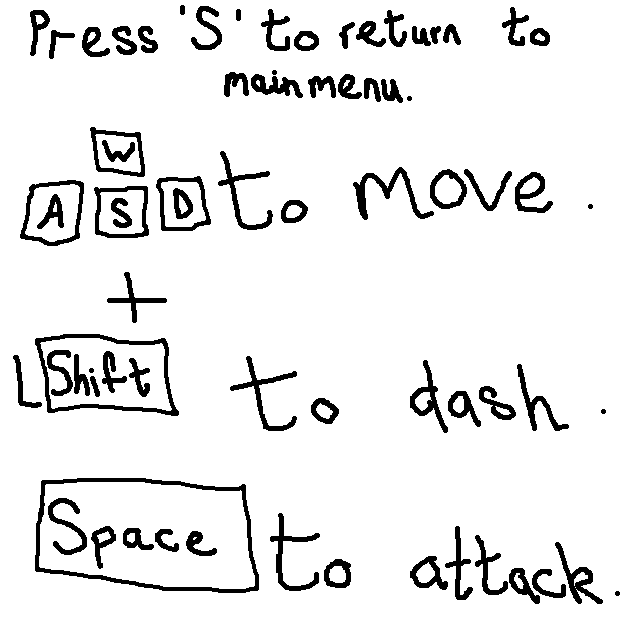 Press 'S' to return to
main menu.
W
A S D to move.
+
L Shift to dash.
Space to attack.